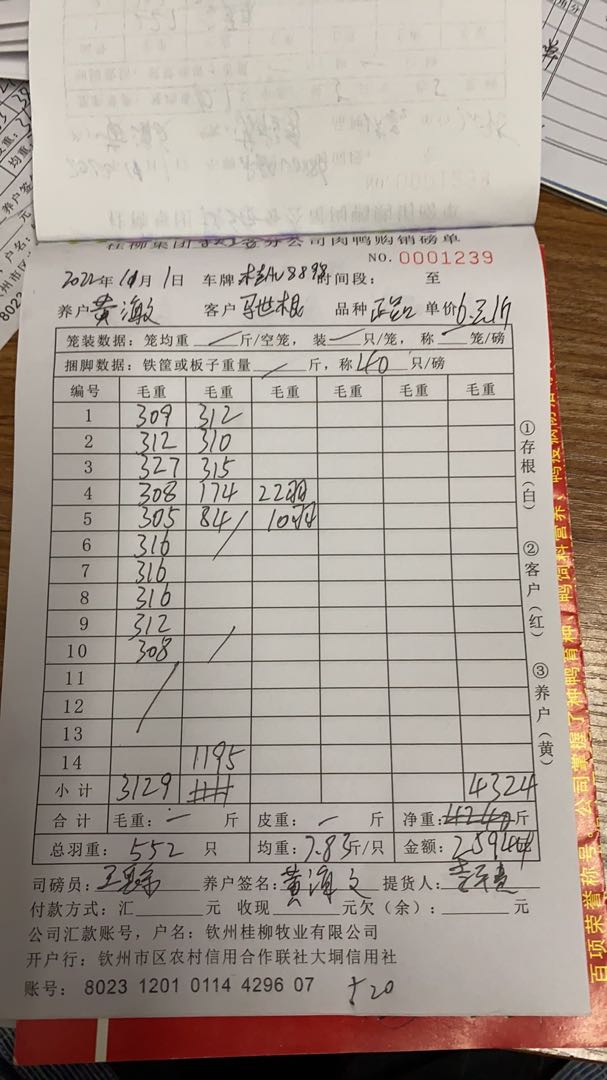 NO.0001238
桂柳集团钦州分公司肉鸭购销磅单
NO.0001239
2022年10月1日 车牌 时间段： 至
养户 黄海文 客户 马世根 品种 正品 单价
笼装数据：笼均重 / 斤/空笼，装 / 只/笼，称 / 笼/磅
捆脚数据：铁筐或板子重量 / 斤，称 40 只/磅
编号 毛重 毛重 毛重 毛重 毛重 毛重
1 309 312
2 312 310
3 327 315
4 308 174 22羽
5 305 84 10羽
6 316
7 316
8 316
9 312
10 308
11
12
13
14 1195
小计 3129 4324
合计 毛重：— 斤 皮重：— 斤 净重： 斤
总羽重：552 只 均重：7.83斤/只 金额：
司磅员： 养户签名：黄海文 提货人：
付款方式：汇 元 收现 元欠（余）： 元
公司汇款账号，户名：钦州桂柳牧业有限公司
开户行：钦州市区农村信用合作联社大垌信用社
账号： 8023 1201 0114 4296 07
①存根（白） ②客户（红） ③养户（黄）